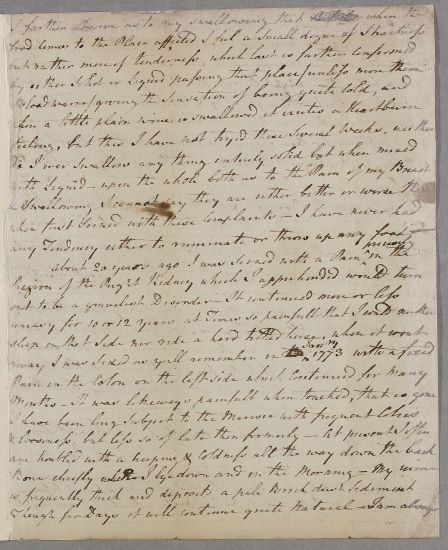 I farther observe as to my swallowing that when the
food comes to the Place affected I feel a small degree of Straitness
but rather more of tenderness, which last is farther confirmed
by either Solid or Liquid passing that place (unless more than
Blood warm) giving the Sensation of being quite cold, and
when a little plain wine is swallowed it causes a Heartburn
feeling, but this I have not try'd these several Weeks, neither
do I ever Swallow any thing entirely solid but when mixed
with Liquid - upon the whole both as to the Pain of my Breast
& Swallowing I cannot say they are either better or worse than
when first seized with these Complaints - I have never had
any Tendency either to ruminate or throw up my food -
about 20 years ago I was seized with a Pain in the
Region of the Right Kidney which I apprehended would turn
out to be a gravelish Disorder - It continued more or less
uneasy for 10 or 12 years at Times so painfull that I could neither
sleep on that Side nor ride a hard trotting horse, when it went
away, I was seized as you'll remember in Janry 1773 with a fixed
Pain in the Colon on the left Side which continued for many
Months - It was likeways painfull when touched, that is gone
I have been long Subject to the with frequent Colics
& looseness, but less so of late than formerly - At present I often
am troubled with a & Coldness all the way down the Back
Bone chiefly when I lye down and in the Morning - My urine
is frequently thick and deposits a pale Brick dust Sediment
Though for Days it will continue quite Natural - I am always